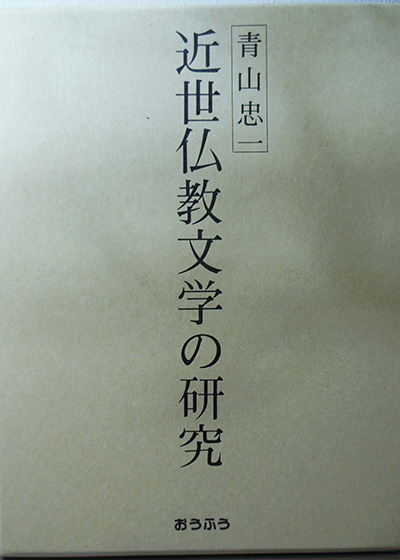 青山忠一
近世仏教文学の研究
おうふう